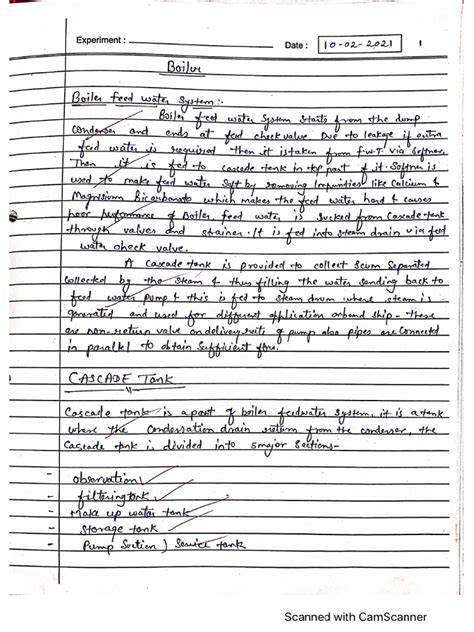 Experiment :
Date : 10-02-2021
1
Boiler
Boiler feed water system :-
Boiler feed water system starts from the dump
Condenser and ends at feed check valve. Due to leakage if extra
feed water is required then it is taken from F.W.T via Softner.
Then it is fed to cascade tank in top part of it. Softner is
used to make feed water soft by removing Impurities like Calcium &
Magnisium Bicarbonate which makes the feed water hard & causes
poor performance of Boiler. feed water is sucked from Cascade tank
through valves and strainer. It is fed into steam drain via feed
water check valve.
A Cascade tank is provided to collect Scum Separated
collected by the steam & thus filling the water sending back to
feed water pump & this is fed to steam drum where steam is
generated and used for different application onboard ship - there
are non-return valve on delivery of pump also pipes are connected
in parallel to obtain Sufficient flow.
CASCADE Tank
Cascade tank is a part of boiler feedwater system, it is a tank
where the Condensation drain return from the condenser, the
Cascade tank is divided into 5 major Sections-
- observation
- filtering tank
- Make up water tank
- Storage tank
- Pump Suction ) Service tank
Scanned with CamScanner